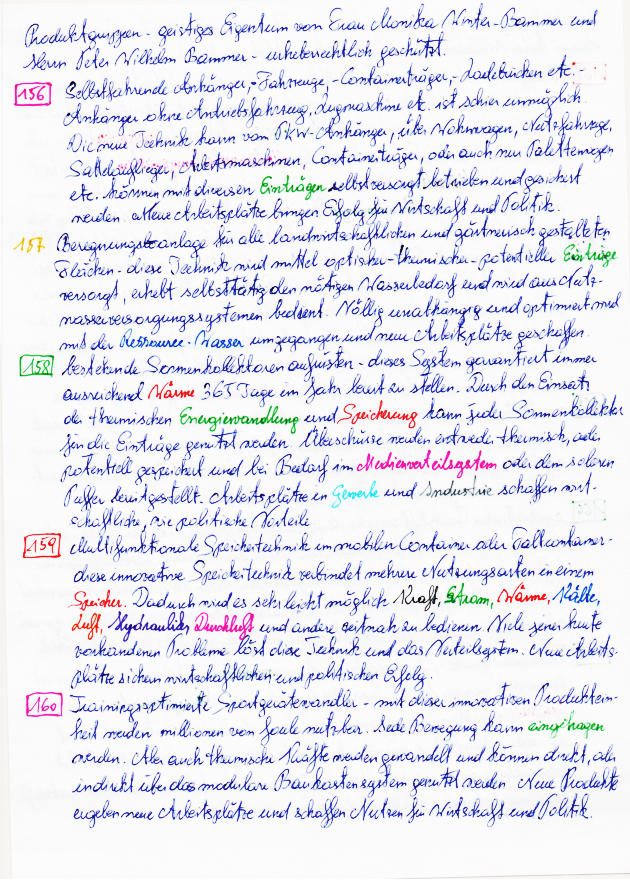 Produktgruppen - geistiges Eigentum von Frau Monika Winter-Bammer und
Herrn Peter Wilhelm Bammer - urheberrechtlich geschützt.
156 Selbstfahrende Anhänger,- Fahrzeuge,- Containerträger,- Ladebrücken etc.-
Anhänger ohne Antriebsfahrzeug, Zugmaschine etc. ist schier unmöglich.
Die neue Technik kann von PKW-Anhänger, über Wohnwagen, Nutzfahrzeuge,
Sattelauflieger, Arbeitsmaschinen, Containerträger, oder auch nur Palettenwagen
etc. können mit diversen Einträgen selbstversorgt betrieben und gesichert
werden. Neue Arbeitsplätze bringen Erfolg für Wirtschaft und Politik.
157 Beregnungsanlage für alle landwirtschaftlichen und gärtnerisch gestalteten
Flächen - diese Technik wird mittel optischer-thermischer-potentieller Einträge
versorgt, erhebt selbsttätig den nötigen Wasserbedarf und wird aus Nutz-
wasserversorgungssystemen bedient. Völlig unabhängig und optimiert wird
mit der Ressource-Wasser umgegangen und neue Arbeitsplätze geschaffen.
158 bestehende Sonnenkollektoren aufrüsten - dieses System garantiert immer
ausreichend Wärme 365 Tage im Jahr bereit zu stellen. Durch den Einsatz
der thermischen Energiewandlung und Speicherung kann jeder Sonnenkollektor
für die Einträge genutzt werden. Überschüsse werden entweder thermisch, oder
potentiell gespeichert und bei Bedarf im Medienverteilsystem oder dem solaren
Puffer bereitgestellt. Arbeitsplätze in Gewerbe und Industrie schaffen wirt-
schaftliche, wie politische Vorteile
159 Multifunktionale Speichertechnik im mobilen Container oder Fallcontainer -
diese innovative Speichertechnik verbindet mehrere Nutzungsarten in einem
Speicher. Dadurch wird es sehr leicht möglich Kraft, Strom, Wärme, Kälte,
Luft, Hydraulik, Druckluft und andere zeitnah zu bedienen. Viele jener heute
vorhandenen Probleme löst diese Technik und das Verteilsystem. Neue Arbeits-
plätze sichern wirtschaftlichen und politischen Erfolg.
160 Trainingsoptimierte Sportgerätewandler - mit dieser innovativen Produktein-
heit werden millionen von Joule nutzbar. Jede Bewegung kann eingetragen
werden. Aber auch thermische Kräfte werden gewandelt und können direkt, oder
indirekt über das modulare Baukastensystem genutzt werden. Neue Produkte
ergeben neue Arbeitsplätze und schaffen Nutzen für Wirtschaft und Politik.